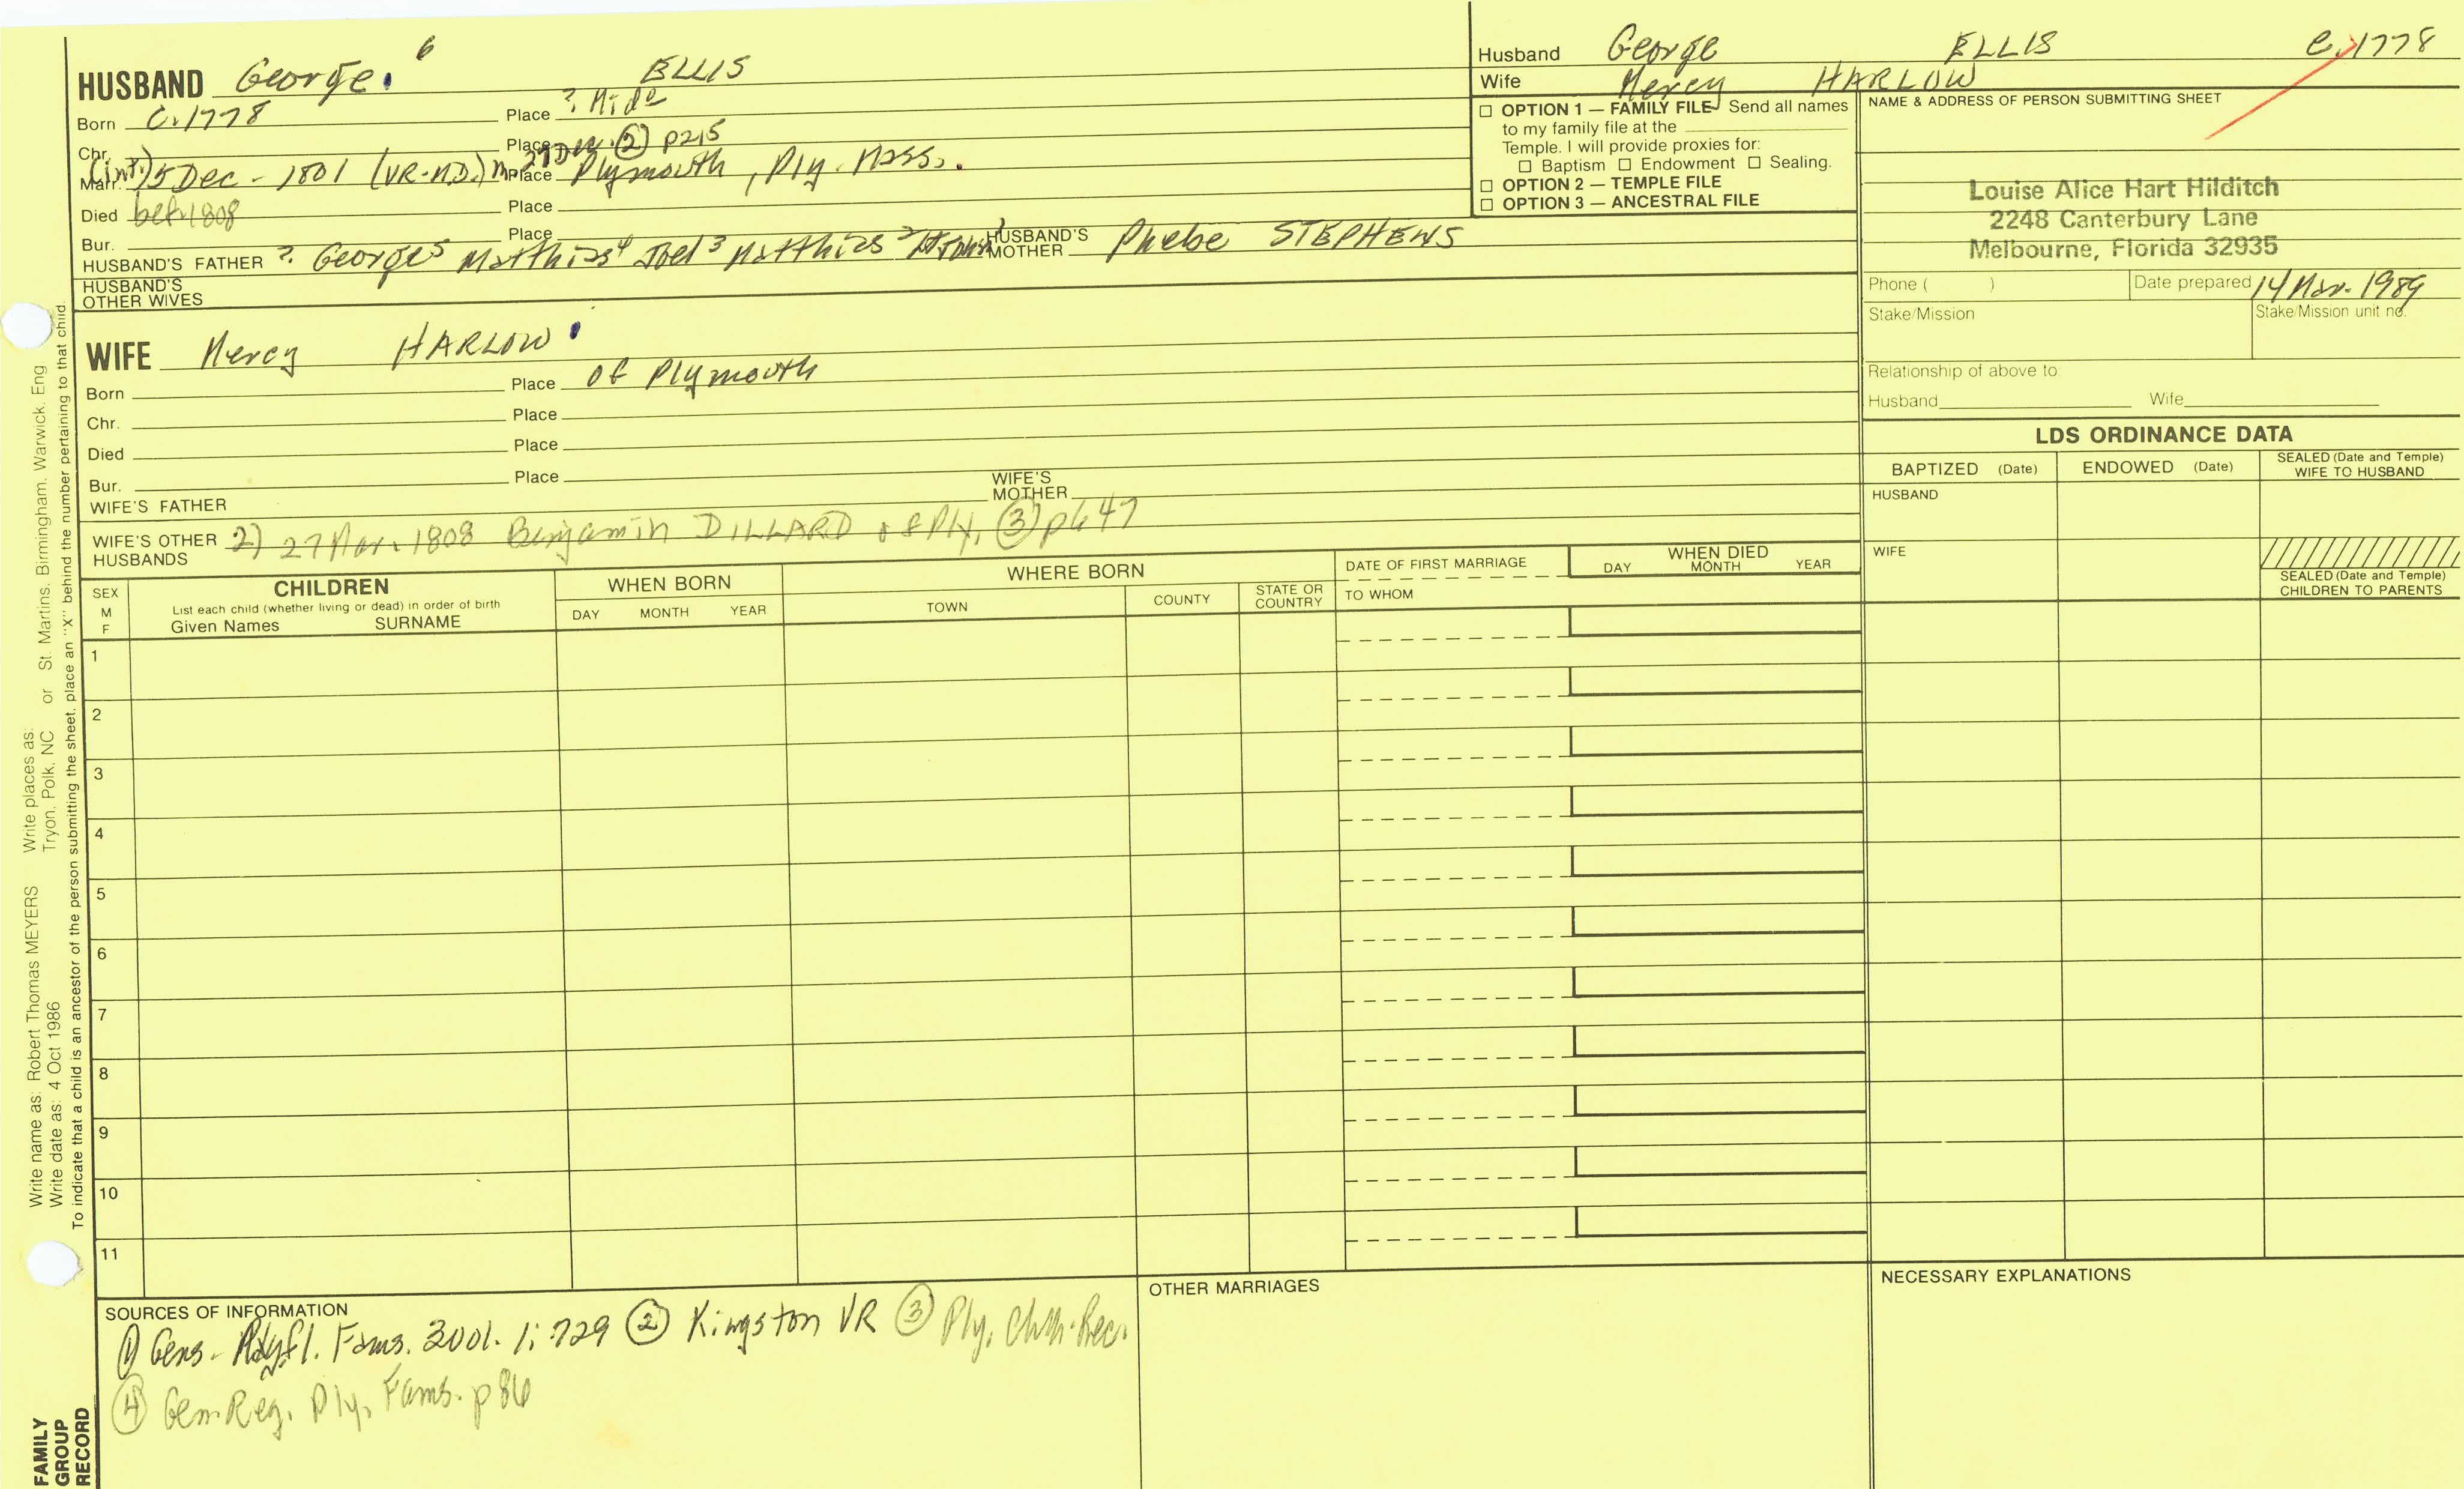 HUSBAND George 6 ELLIS
Born C. 1778 Place ? Mid
Chr. Place 27 Dec. (2) p215
Marr. (int) 5 Dec - 1801 (VR-MD.) m Place Plymouth, Ply. Mass.
Died bef. 1808 Place
Bur. Place
HUSBAND'S FATHER ? George5 Matthias4 Joel3 Matthias2 HUSBAND'S MOTHER Phebe STEPHENS
HUSBAND'S OTHER WIVES
WIFE Mercy HARLOW
Born Place of Plymouth
Chr. Place
Died Place
Bur. Place
WIFE'S FATHER WIFE'S MOTHER
WIFE'S OTHER HUSBANDS 2) 27 Mar. 1808 Benjamin DILLARD of Ply. (3) p647
Husband George ELLIS C. 1778
Wife Mercy HARLOW
☐ OPTION 1 — FAMILY FILE Send all names
to my family file at the
Temple. I will provide proxies for:
☐ Baptism ☐ Endowment ☐ Sealing.
☐ OPTION 2 — TEMPLE FILE
☐ OPTION 3 — ANCESTRAL FILE
NAME & ADDRESS OF PERSON SUBMITTING SHEET
Louise Alice Hart Hilditch
2248 Canterbury Lane
Melbourne, Florida 32935
Phone ( ) Date prepared 14 Mar. 1989
Stake/Mission Stake/Mission unit no.
Relationship of above to
Husband Wife
LDS ORDINANCE DATA
BAPTIZED (Date) ENDOWED (Date) SEALED (Date and Temple) WIFE TO HUSBAND
HUSBAND
WIFE
SEALED (Date and Temple) CHILDREN TO PARENTS
SEX M F
CHILDREN
List each child (whether living or dead) in order of birth
Given Names SURNAME
WHEN BORN
DAY MONTH YEAR
WHERE BORN
TOWN COUNTY STATE OR COUNTRY
DATE OF FIRST MARRIAGE
TO WHOM
WHEN DIED
DAY MONTH YEAR
1
2
3
4
5
6
7
8
9
10
11
SOURCES OF INFORMATION
(1) Gens. Fams. 3 vol. 1: 729 (2) Kingston VR (3) Ply. Chh. Rec.
(4) Gen. Reg. Ply. Fams. p 86
OTHER MARRIAGES
NECESSARY EXPLANATIONS
Write name as: Robert Thomas MEYERS Write places as: Tryon, Polk, NC or St. Martins, Birmingham, Warwick, Eng
Write date as: 4 Oct 1986
To indicate that a child is an ancestor of the person submitting the sheet, place an "X" behind the number pertaining to that child.
FAMILY
GROUP
RECORD